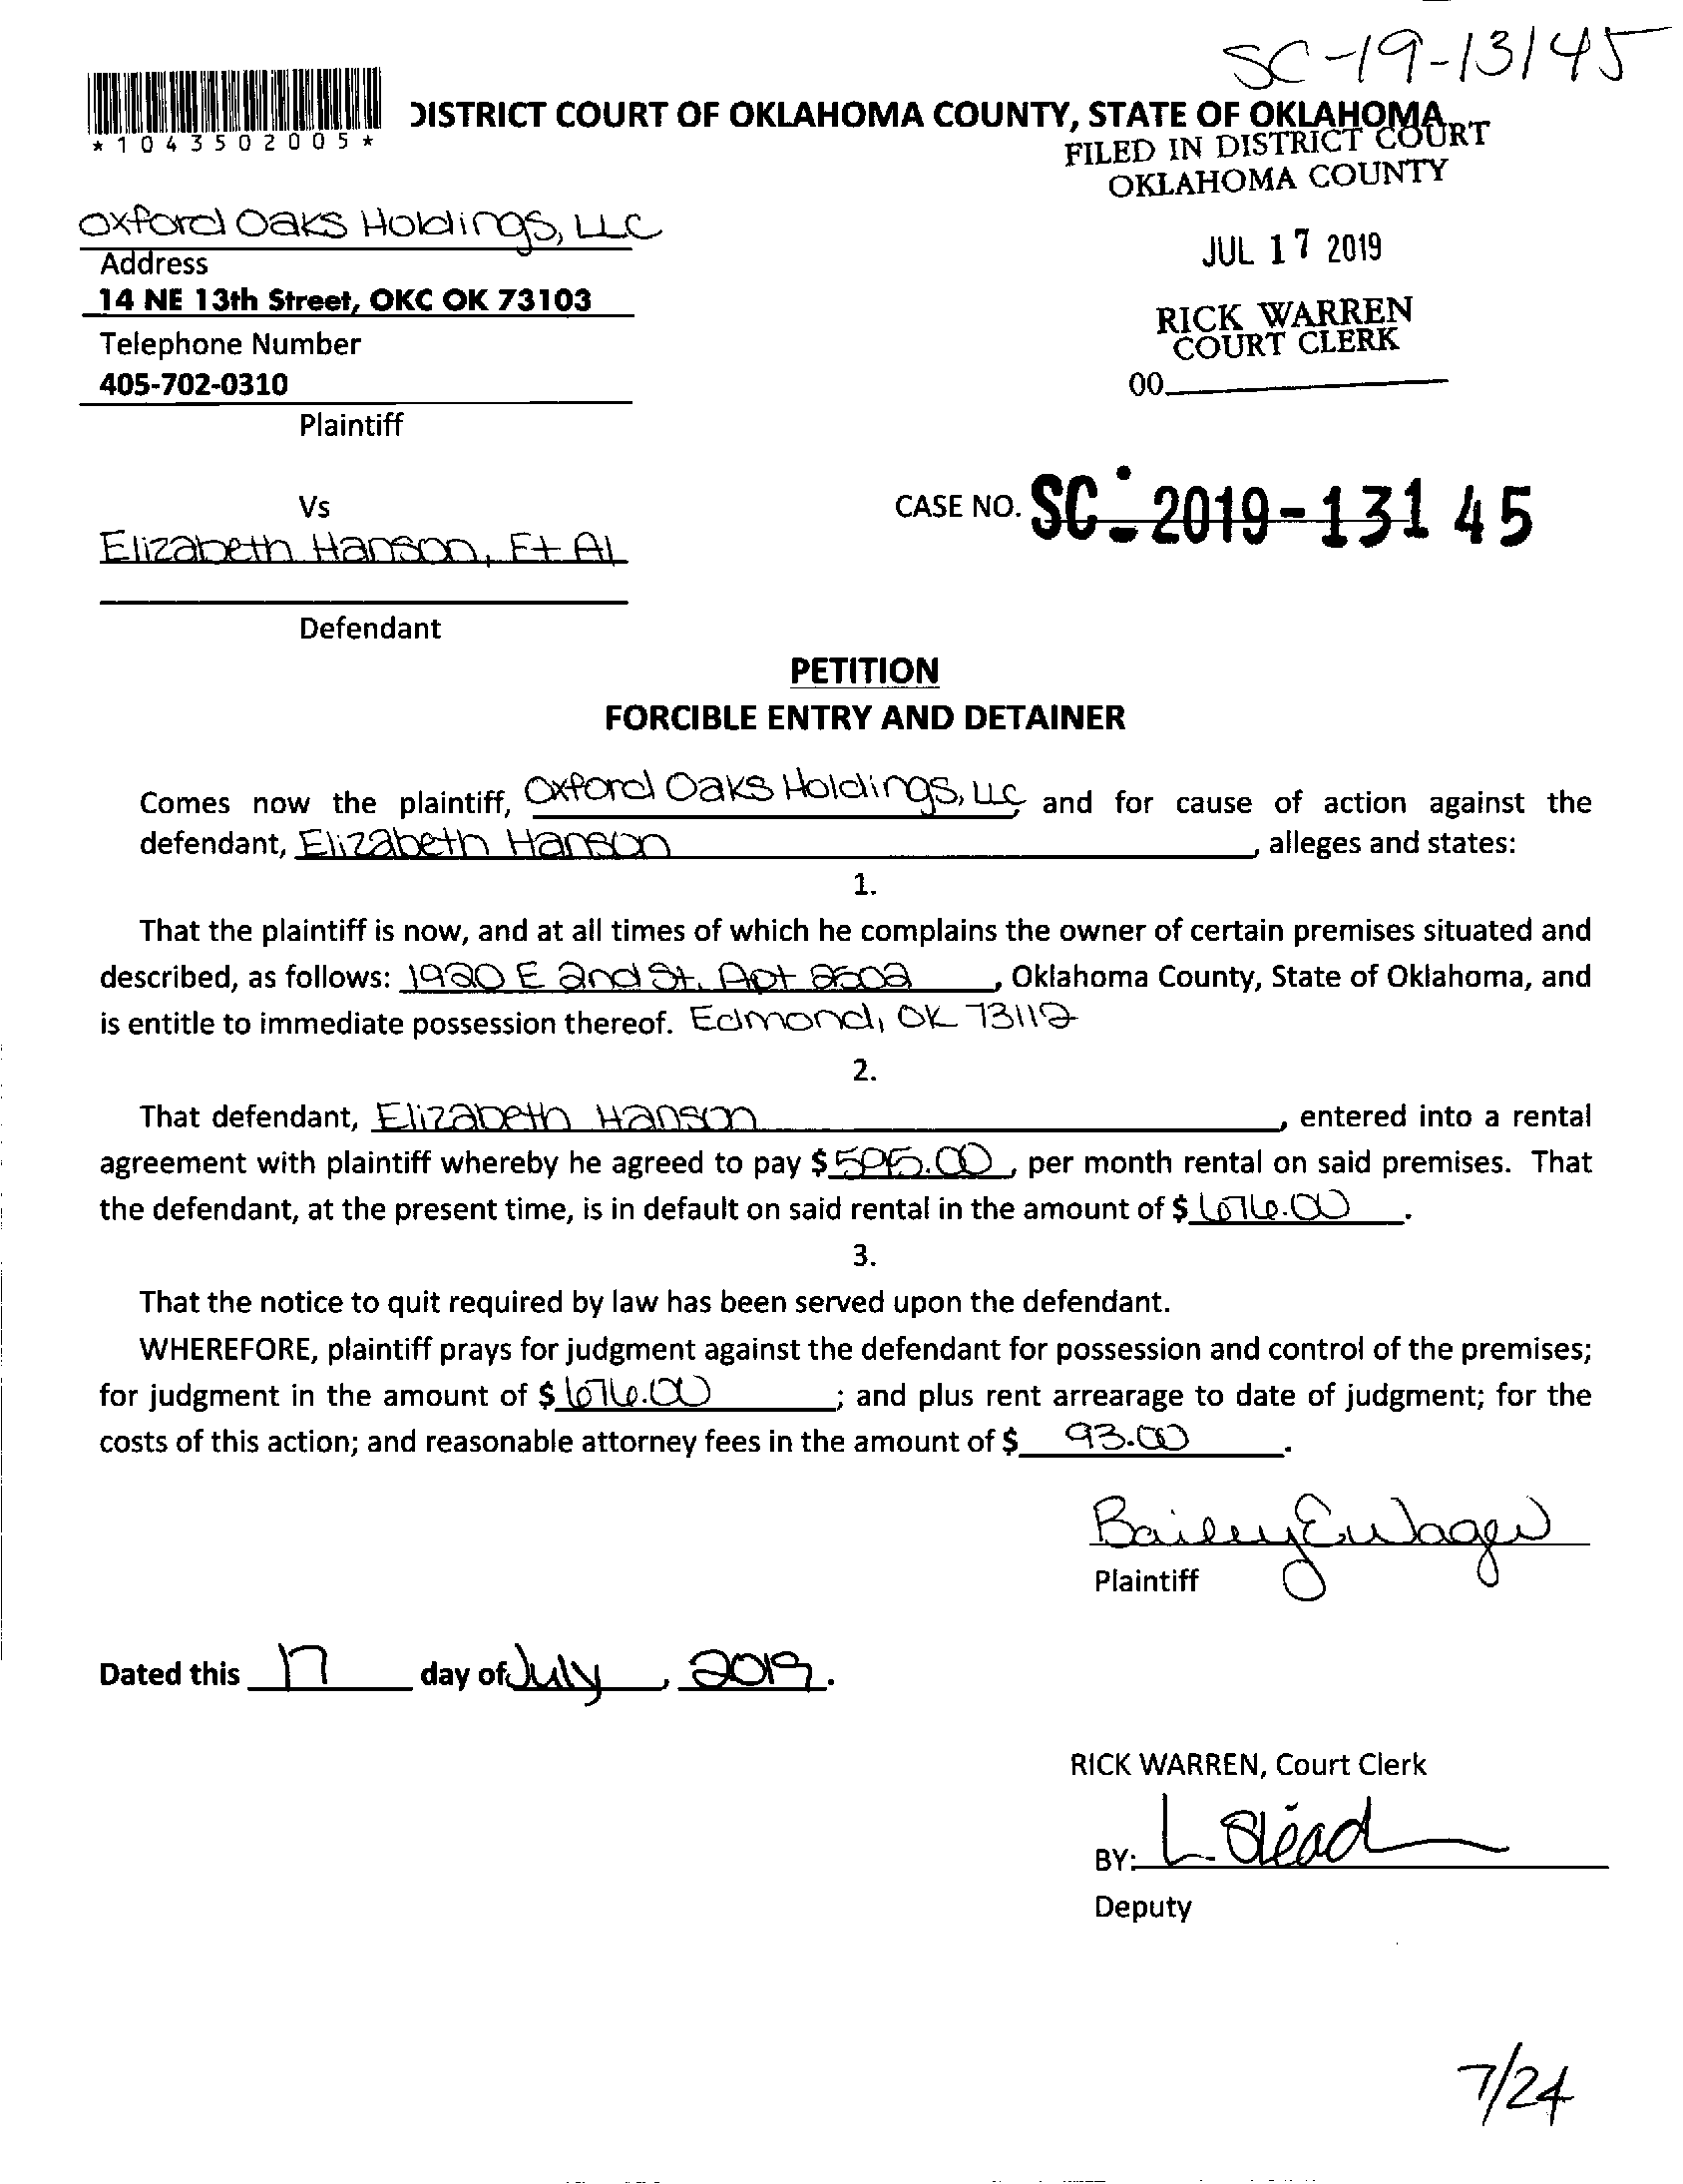 SC-19-13145
DISTRICT COURT OF OKLAHOMA COUNTY, STATE OF OKLAHOMA
*1043502005*
FILED IN DISTRICT COURT
OKLAHOMA COUNTY
Oxford Oaks Holdings, LLC
JUL 17 2019
Address
14 NE 13th Street, OKC OK 73103
RICK WARREN
COURT CLERK
Telephone Number
405-702-0310
00
Plaintiff
Vs
CASE NO. SC-2019-13145
Elizabeth Hanson, Et Al
Defendant
PETITION
FORCIBLE ENTRY AND DETAINER
Comes now the plaintiff, Oxford Oaks Holdings, LLC and for cause of action against the
defendant, Elizabeth Hanson, alleges and states:
1.
That the plaintiff is now, and at all times of which he complains the owner of certain premises situated and
described, as follows: 1920 E 2nd St. Apt 2502, Oklahoma County, State of Oklahoma, and
is entitle to immediate possession thereof. Edmond, OK 73112
2.
That defendant, Elizabeth Hanson, entered into a rental
agreement with plaintiff whereby he agreed to pay $ 595.00, per month rental on said premises. That
the defendant, at the present time, is in default on said rental in the amount of $ 676.00.
3.
That the notice to quit required by law has been served upon the defendant.
WHEREFORE, plaintiff prays for judgment against the defendant for possession and control of the premises;
for judgment in the amount of $ 676.00; and plus rent arrearage to date of judgment; for the
costs of this action; and reasonable attorney fees in the amount of $ 93.00.
Bailey
Plaintiff
Dated this 17 day of July, 2019.
RICK WARREN, Court Clerk
BY: L. Stead
Deputy
7/24